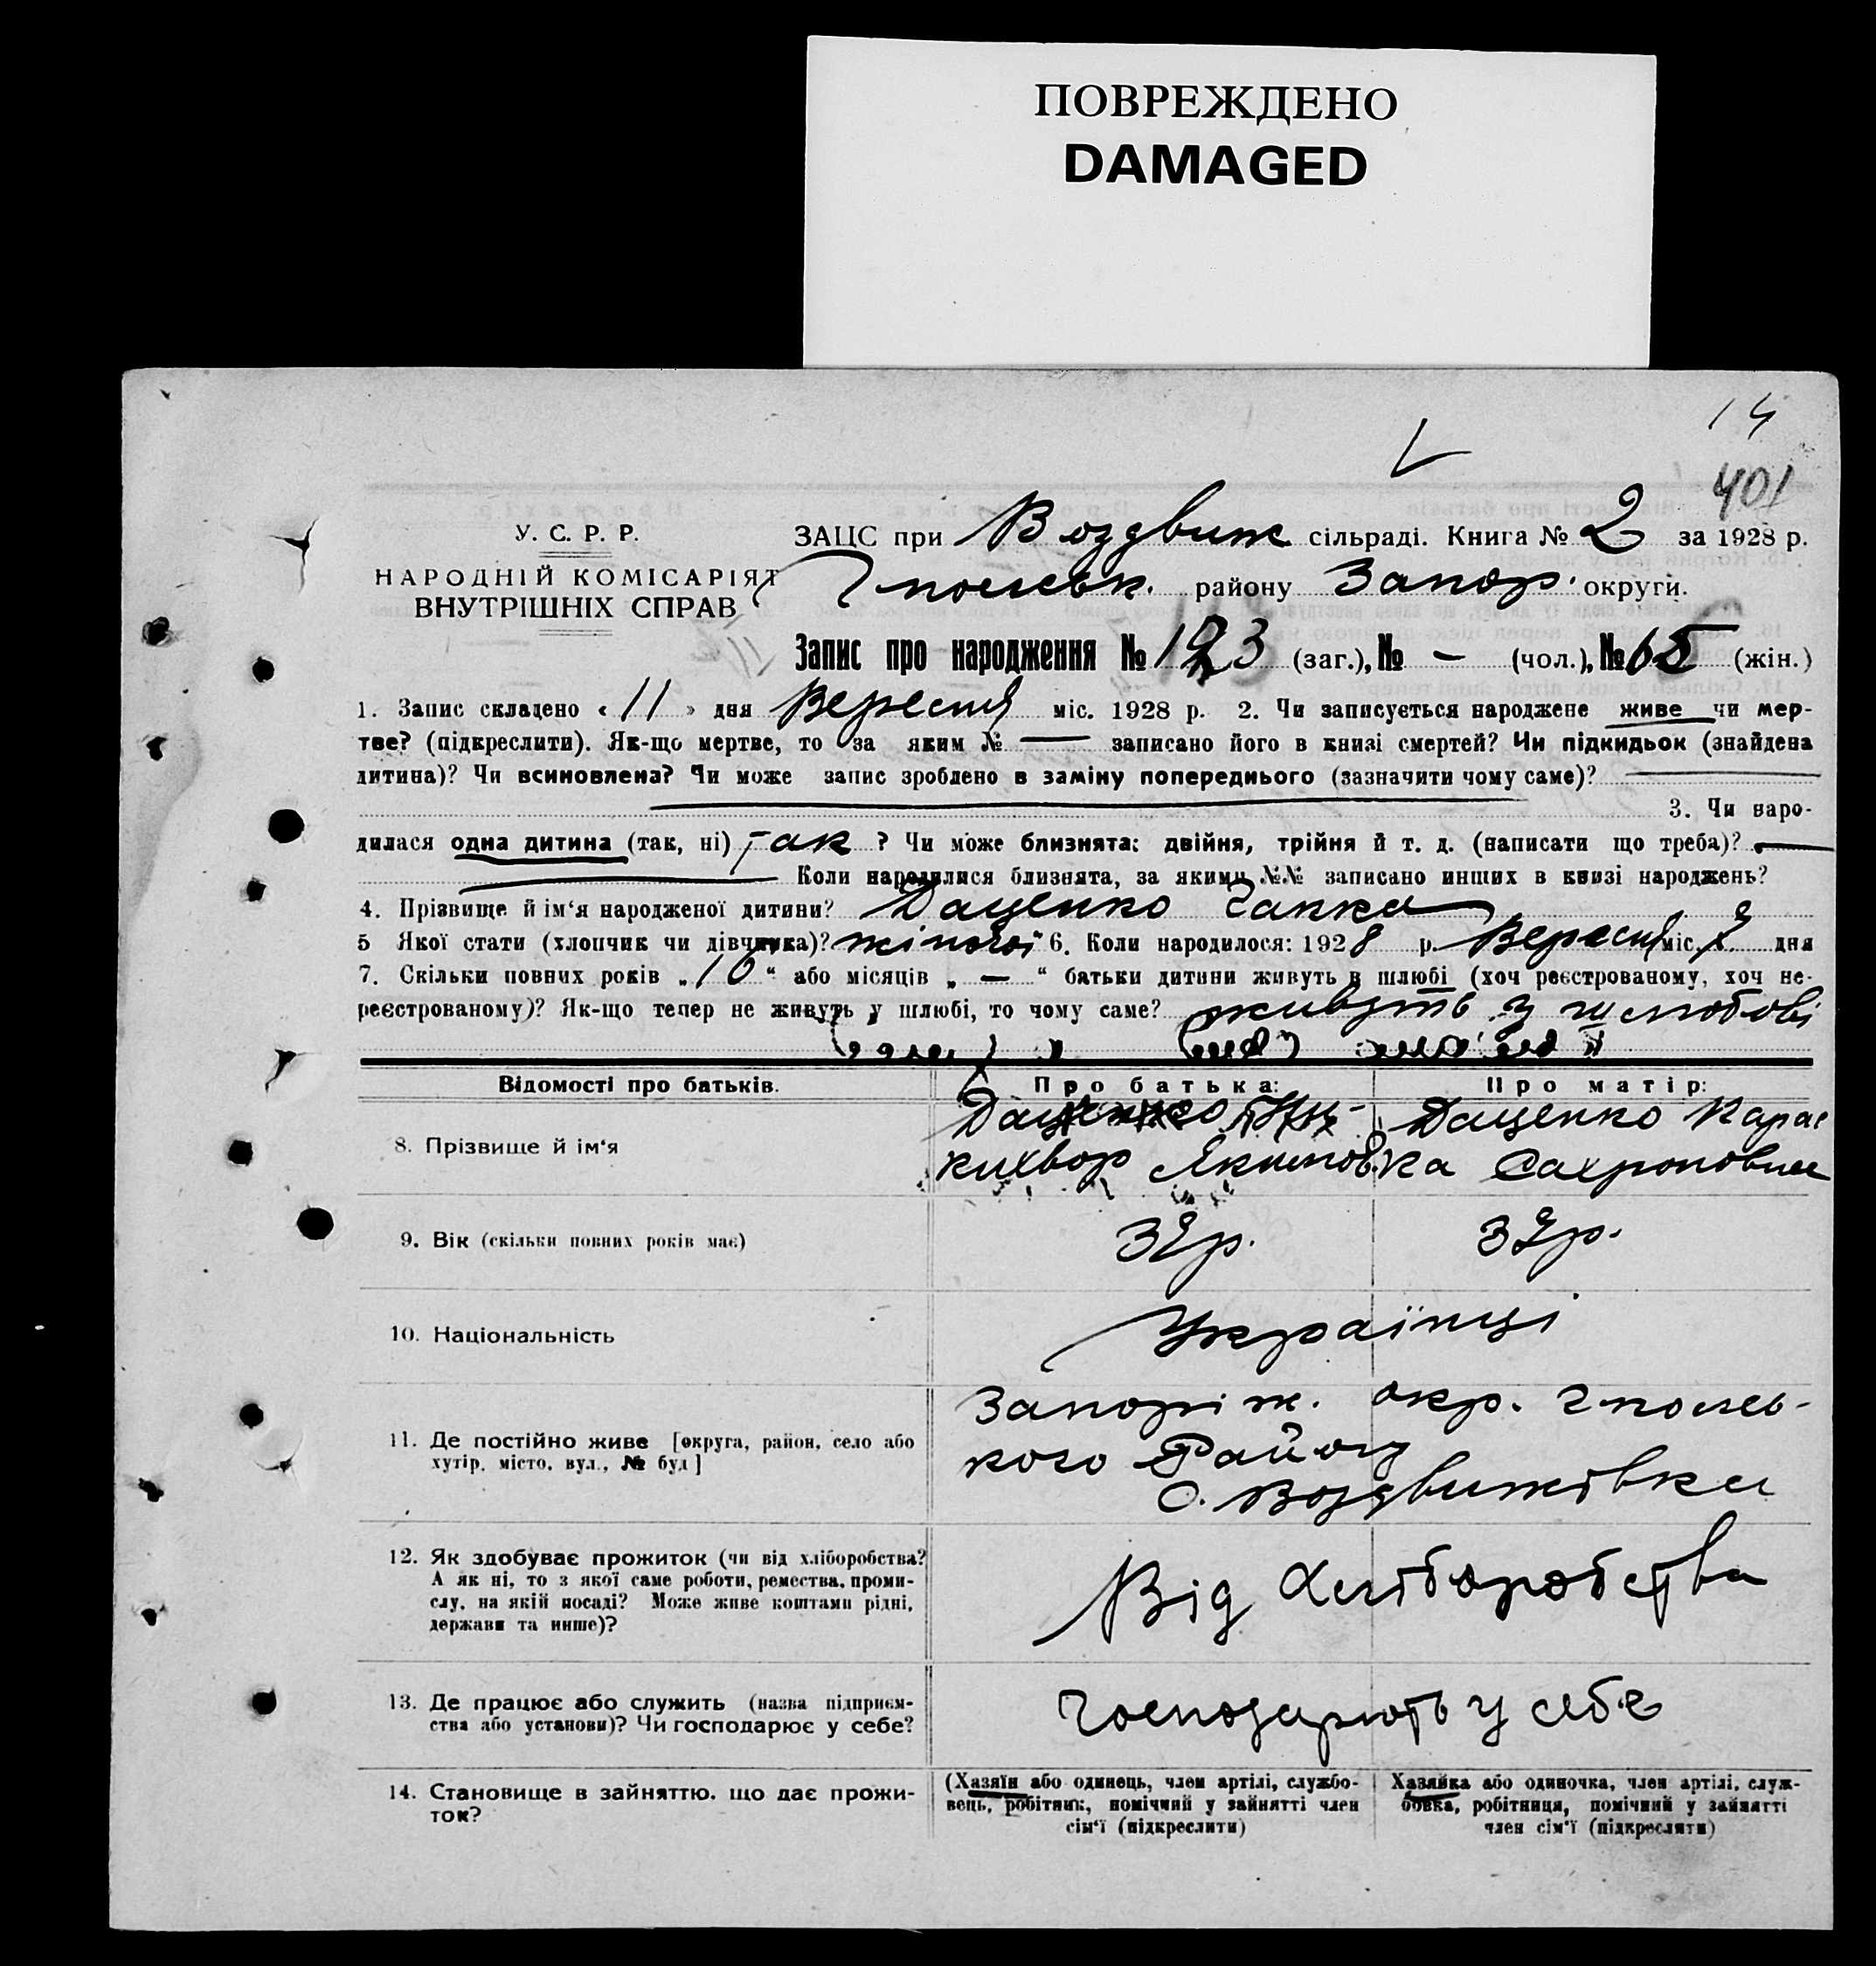 ПОВРЕЖДЕНО
DAMAGED
14
401
У. С. Р. Р.
НАРОДНІЙ КОМІСАРІЯТ
ВНУТРІШНІХ СПРАВ
ЗАЦС при Воздвиж сільраді. Книга № 2 за 1928 р.
Гполськ. району Запор. округи.
Запис про народження № 123 (заг.), № – (чол.), № 65 (жін.)
1. Запис складено « 11 » дня Вересня міс. 1928 р. 2. Чи записується народжене живе чи мер-
тве? (підкреслити). Як-що мертве, то за яким № — записано його в книзі смертей? Чи підкидьок (знайдена
дитина)? Чи всиновлена? Чи може запис зроблено в заміну попереднього (зазначити чому саме)?
3. Чи наро-
дилася одна дитина (так, ні) так ? Чи може близнята: двійня, трійня й т. д. (написати що треба)?
Коли народилися близнята, за якими №№ записано инших в книзі народжень?
4. Прізвище й ім'я народженої дитини? Даценко Ганна
5 Якої стати (хлопчик чи дівчинка)? жіночої 6. Коли народилося: 1928 р. Вересня міс. дня
7. Скільки повних років „ 10 “ або місяців „ — “ батьки дитини живуть в шлюбі (хоч реєстрованому, хоч не-
реєстрованому)? Як-що тепер не живуть у шлюбі, то чому саме? живуть у шлюбові
Відомості про батьків. Про батька: Про матір:
8. Прізвище й ім'я
Даценко Ни- Даценко Парас
кихвор Якимов ка Сахроновна
9. Вік (скільки повних років має) р. р.
10. Національність Українці
11. Де постійно живе [округа, район, село або
хутір, місто, вул., № буд]
Запоріж. окр. Гполсь-
кого Району
с. Воздвижівка
12. Як здобуває прожиток (чи від хліборобства?
А як ні, то з якої саме роботи, ремества, проми-
слу, на якій посаді? Може живе коштами рідні,
держави та инше)?
Від Хліборобства
13. Де працює або служить (назва підприєм-
ства або установи)? Чи господарює у себе?
Господарюють у себе
14. Становище в зайняттю, що дає прожи-
ток?
(Хазяїн або одинець, член артілі, службо-
вець, робітник, помічний у зайнятті член
сім'ї (підкреслити)
Хазяйка або одиночка, член артілі, служ-
бовка, робітниця, помічний у зайнятті
член сім'ї (підкреслити)